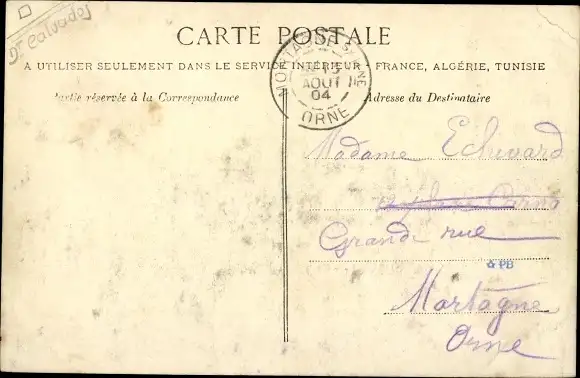 Dt Calvados
CARTE POSTALE
A UTILISER SEULEMENT DANS LE SERVICE INTÉRIEUR FRANCE, ALGÉRIE, TUNISIE
Partie réservée à la Correspondance
Adresse du Destinataire
AOUT
04
ORNE
Madame
Grande rue
PB
Mortagne
Orne